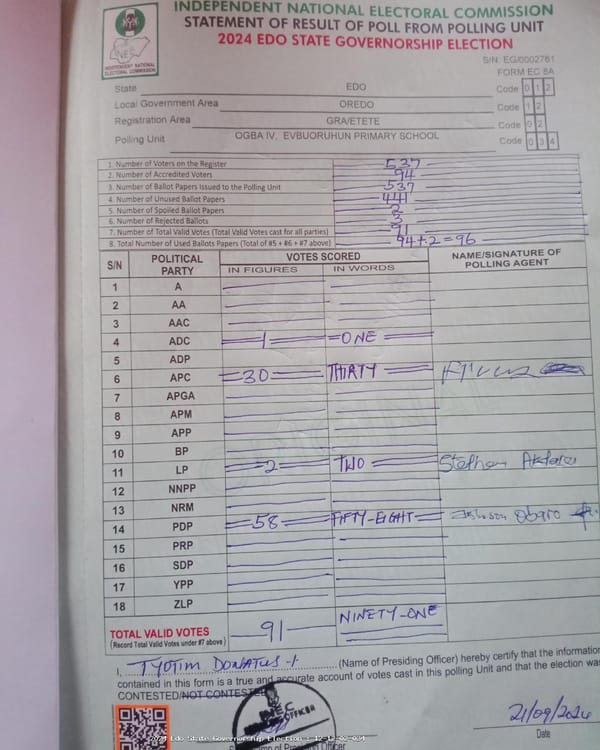 INDEPENDENT NATIONAL ELECTORAL COMMISSION
STATEMENT OF RESULT OF POLL FROM POLLING UNIT
2024 EDO STATE GOVERNORSHIP ELECTION
INDEPENDENT NATIONAL
ELECTORAL COMMISSION
S/N: EG/0002761
FORM EC 8A
State EDO Code 0 1 2
Local Government Area OREDO Code 1 2
Registration Area GRA/ETETE Code 0 2
Polling Unit OGBA IV, EVBUORUHUN PRIMARY SCHOOL Code 0 3 4
1. Number of Voters on the Register 537
2. Number of Accredited Voters 94
3. Number of Ballot Papers Issued to the Polling Unit 537
4. Number of Unused Ballot Papers 441
5. Number of Spoiled Ballot Papers 2
6. Number of Rejected Ballots 3
7. Number of Total Valid Votes (Total Valid Votes cast for all parties) 91
8. Total Number of Used Ballots Papers (Total of #5 + #6 + #7 above) 94+2=96
S/N POLITICAL PARTY VOTES SCORED NAME/SIGNATURE OF POLLING AGENT
IN FIGURES IN WORDS
1 A
2 AA
3 AAC
4 ADC 1 ONE
5 ADP
6 APC 30 THIRTY
7 APGA
8 APM
9 APP
10 BP
11 LP 2 TWO Stephen
12 NNPP
13 NRM
14 PDP 58 FIFTY-EIGHT Obaro
15 PRP
16 SDP
17 YPP
18 ZLP
TOTAL VALID VOTES 91 NINETY-ONE
(Record Total Valid Votes under #7 above)
I, TYOTIM DONATUS -1. (Name of Presiding Officer) hereby certify that the information
contained in this form is a true and accurate account of votes cast in this polling Unit and that the election was
CONTESTED/NOT CONTESTED
21/09/2024
Date
2024 Edo State Governorship Election - 12-12-02-034
of Presiding Officer